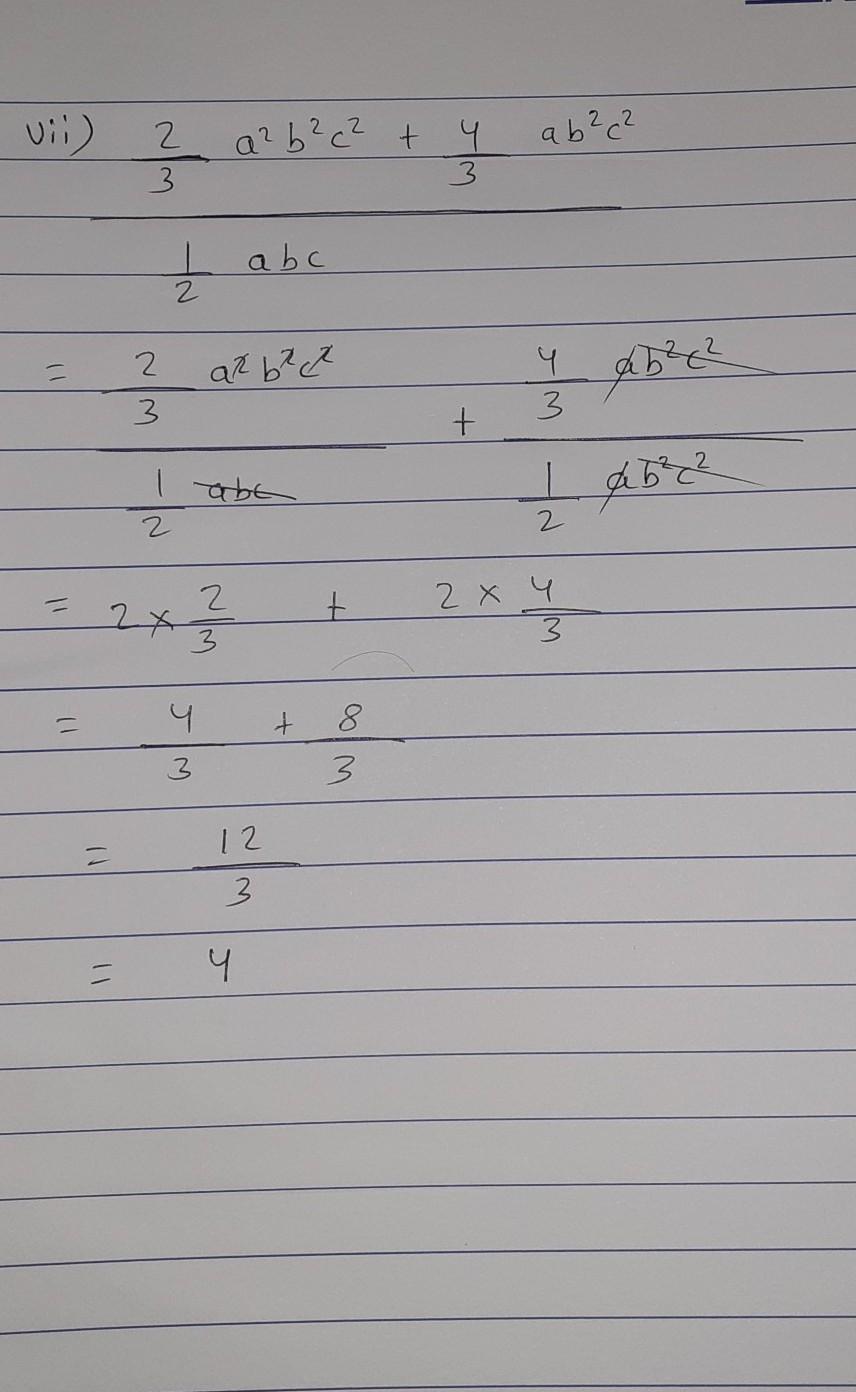 vii) 2/3 a²b²c² + 4/3 ab²c²
1/2 abc
= 2/3 a²b²c² + 4/3 ab²c²
1/2 abc 1/2 ab²c²
= 2 × 2/3 + 2 × 4/3
= 4/3 + 8/3
= 12/3
= 4